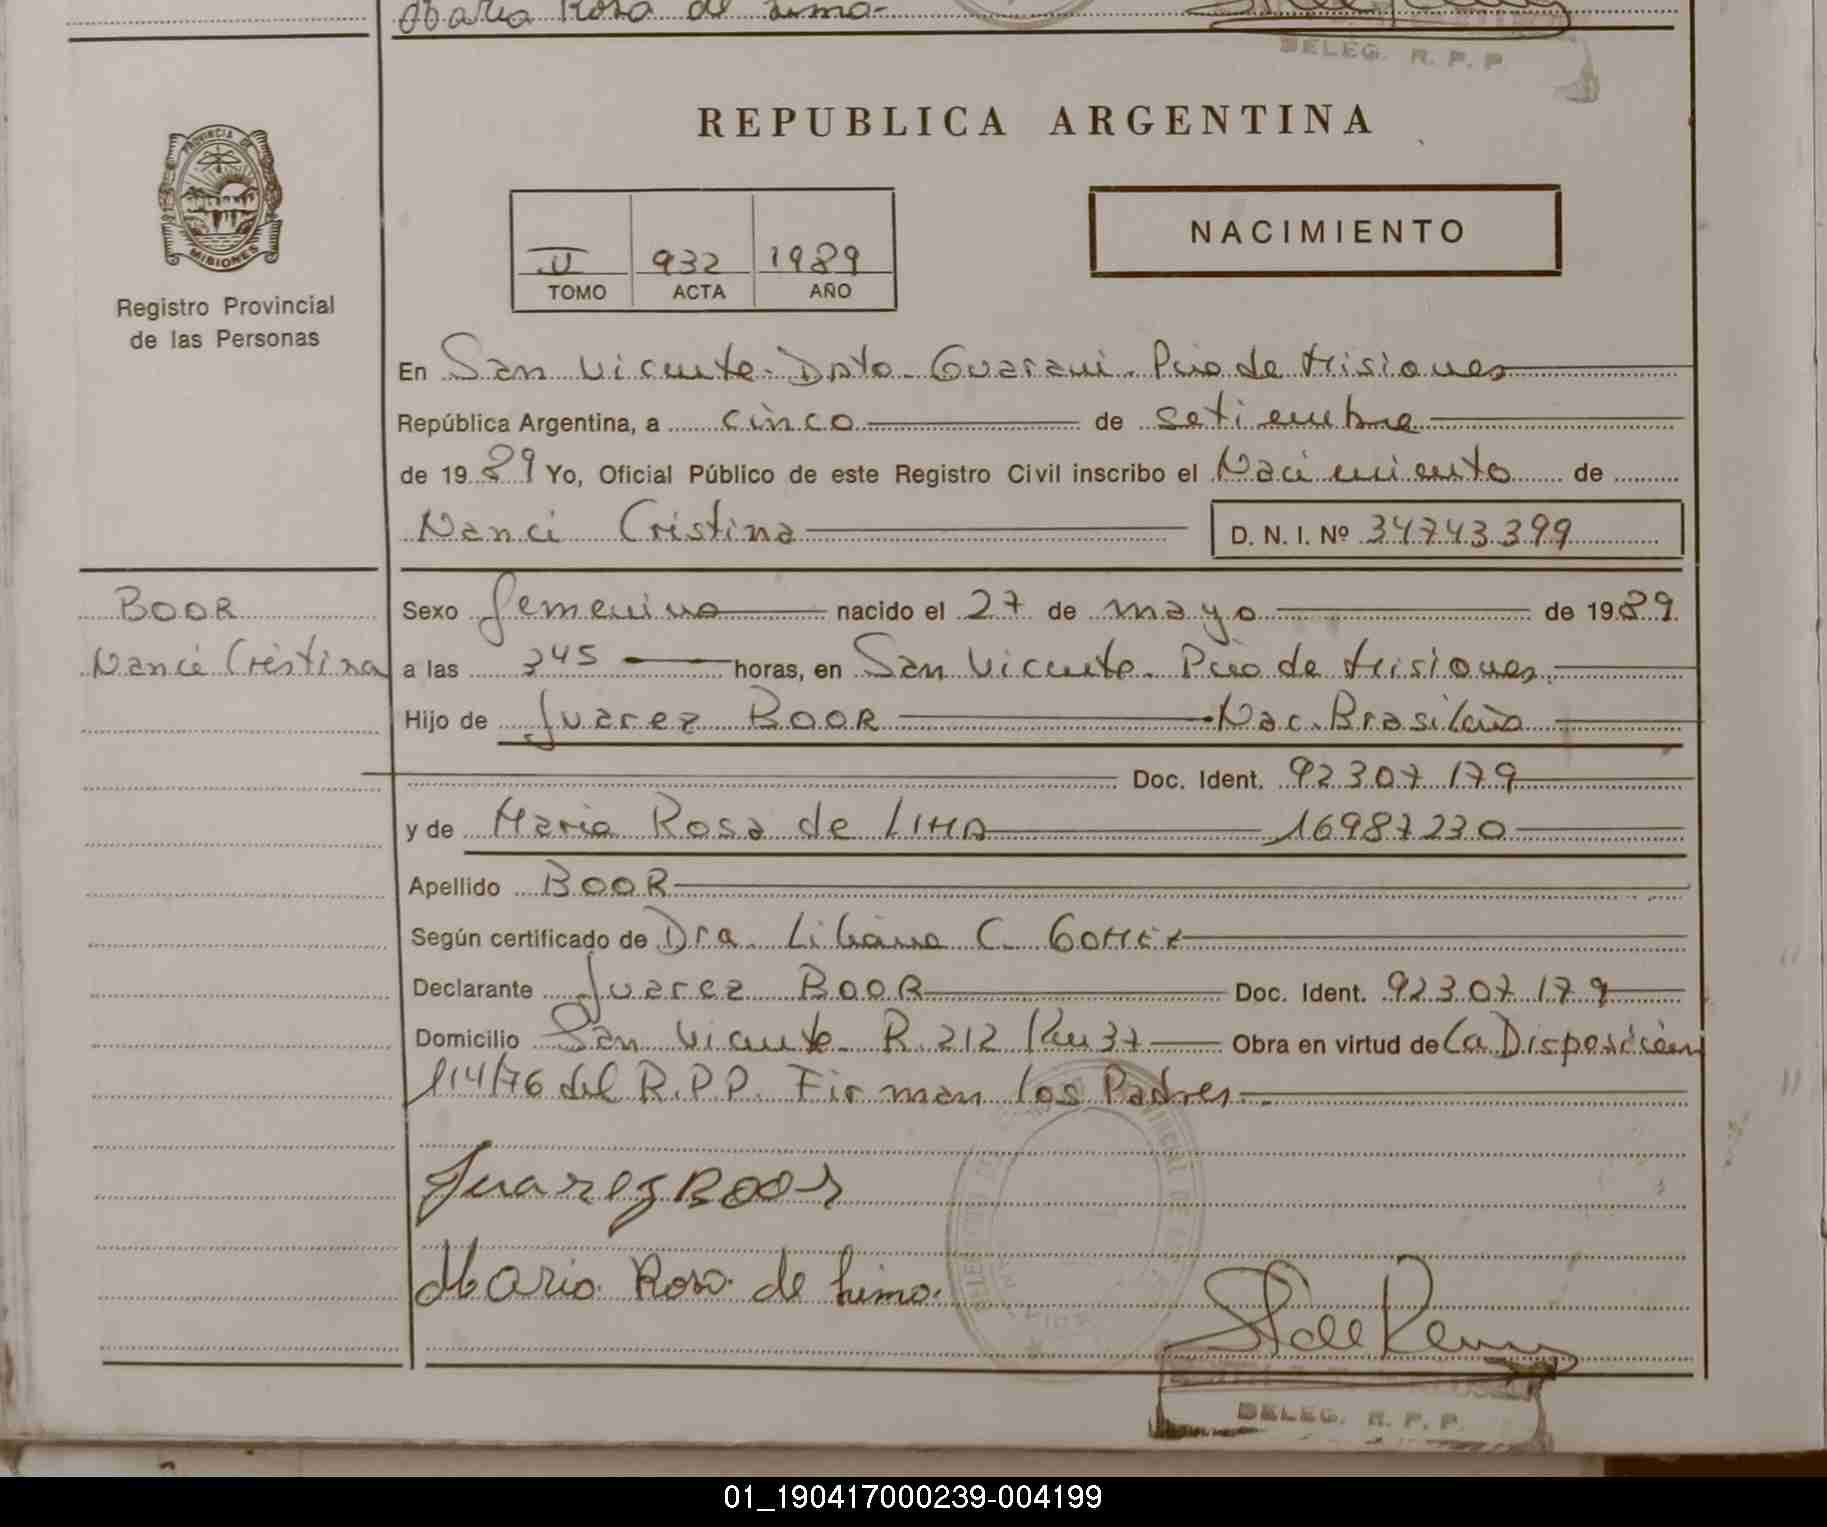 Maria Rosa de Lima.
DELEG. R. P. P.
PROVINCIA DE
MISIONES
Registro Provincial
de las Personas
REPUBLICA ARGENTINA
II 932 1989
TOMO ACTA AÑO
NACIMIENTO
En San Vicente. Dpto. Guarani. Pcia de Misiones
República Argentina, a cinco de setiembre
de 1989 Yo, Oficial Público de este Registro Civil inscribo el Nacimiento de
Nanci Cristina D. N. I. Nº 34743399
BOOR
Nanci Cristina
Sexo femenino nacido el 27 de mayo de 1989.
a las 345 horas, en San Vicente. Pcia de Misiones.
Hijo de Juarez BOOR Nac. Brasileña
Doc. Ident. 92307179
y de Maria Rosa de LIMA 16987230
Apellido BOOR
Según certificado de Dra. Liliana C. GOMEZ
Declarante Juarez BOOR Doc. Ident. 92307179
Domicilio San Vicente. R. 212 Km 37 Obra en virtud de la Disposición
114/76 del R.P.P. Firman los Padres.
Juarez Boor
Maria Rosa de Lima.
DELEG. R. P. P.
01_190417000239-004199